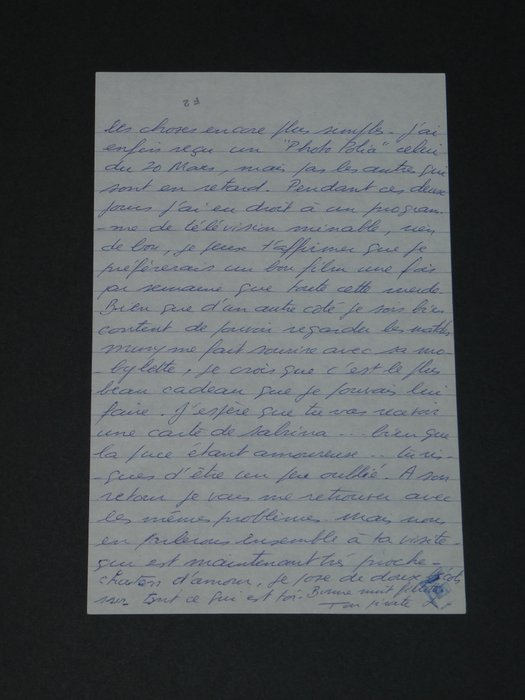 F2
des choses encore plus simples - J'ai
enfin reçu un "Photo Polia" celui
du 20 Mars, mais pas les autres qui
sont en retard. Pendant ces deux
jours j'ai eu droit à un program-
-me de télévision minable, rien
de bon, je peux t'affirmer que je
préfèrerais un bon film une fois
par semaine que toute cette merde.
Bien que d'un autre coté je sois bien
content de pouvoir regarder les
me fait sourire avec sa mo-
-bylette, je crois que c'est le plus
beau cadeau que je pouvais lui
faire. J'espère que tu vas recevoir
une carte de Sabrina ... bien que
la puce étant amoureuse ... tu ris-
-ques d'être un peu oublié. A son
retour je vais me retrouver avec
les mêmes problèmes mais nous
en parlerons ensemble à ta visite
qui est maintenant très proche -
d'amour, je pose de doux
sur tout ce qui est toi. Bonne nuit
Ton pirate